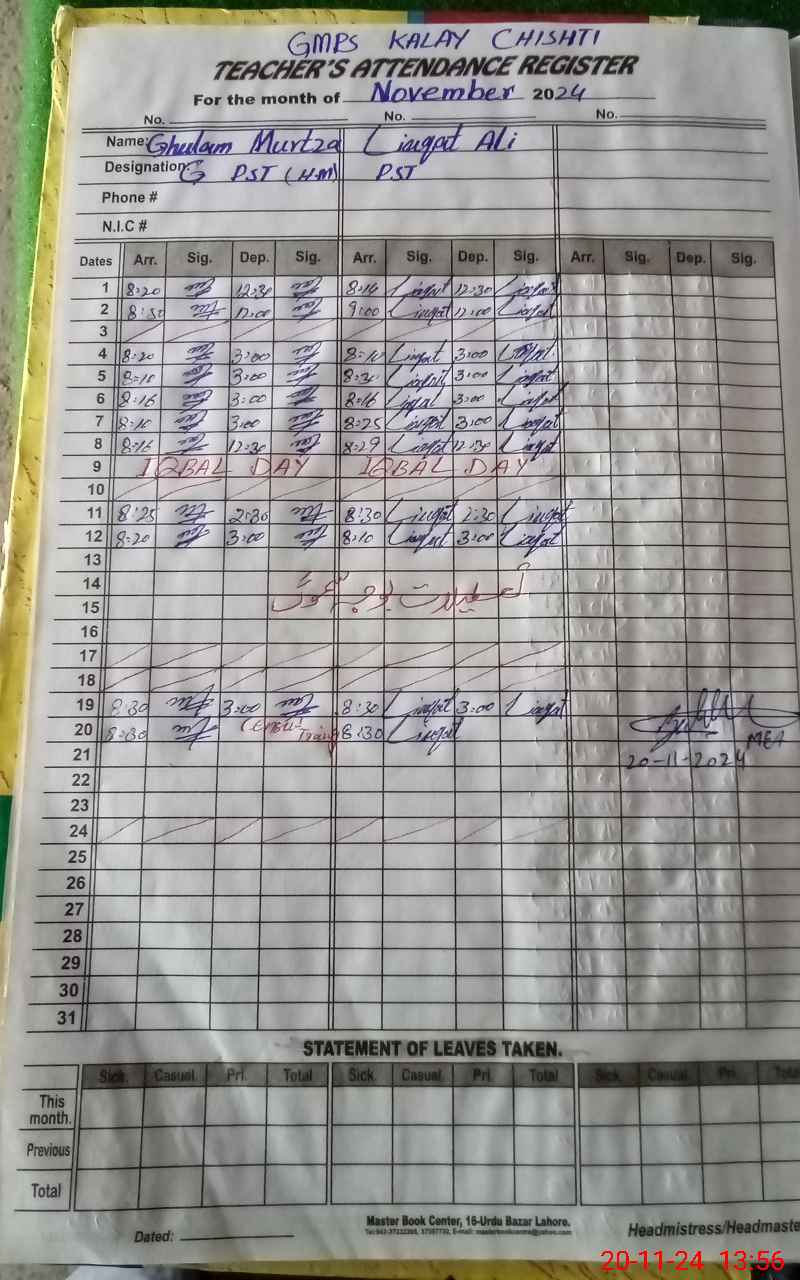 GMPS KALAY CHISHTI
TEACHER'S ATTENDANCE REGISTER
For the month of November 2024
No. No. No.
Name: Ghulam Murtza Liaqat Ali
Designation: PST (H.M) PST
Phone #
N.I.C #
Dates Arr. Sig. Dep. Sig. Arr. Sig. Dep. Sig. Arr. Sig. Dep. Sig.
1 8:20 12:30 8:16 Liaqat 12:30 Liaqat
2 8:50 12:00 9:00 Liaqat 12:00 Liaqat
3
4 8:20 3:00 8:10 Liaqat 3:00 Liaqat
5 8:10 3:00 Liaqat 3:00 Liaqat
6 8:16 3:00 8:16 Liaqat 3:00 Liaqat
7 8:10 3:00 8:25 Liaqat 3:00 Liaqat
8 8:16 12:30 8:29 Liaqat 12:30 Liaqat
9 IQBAL DAY IQBAL DAY
10
11 8:25 2:30 8:30 Liaqat 2:30 Liaqat
12 8:20 3:00 8:10 Liaqat 3:00 Liaqat
13
14
تعطیلات بوجہ سموگ
15
16
17
18
19 8:30 3:00 8:30 Liaqat 3:00 Liaqat
20 8:30 8:30 Liaqat
MEA
21 20-11-2024
22
23
24
25
26
27
28
29
30
31
STATEMENT OF LEAVES TAKEN.
Sick. Casual. Pri. Total Sick. Casual. Pri. Total Sick. Casual. Pri. Total
This month.
Previous
Total
Master Book Center, 16-Urdu Bazar Lahore.
Dated: Headmistress/Headmaste
20-11-24 13:56